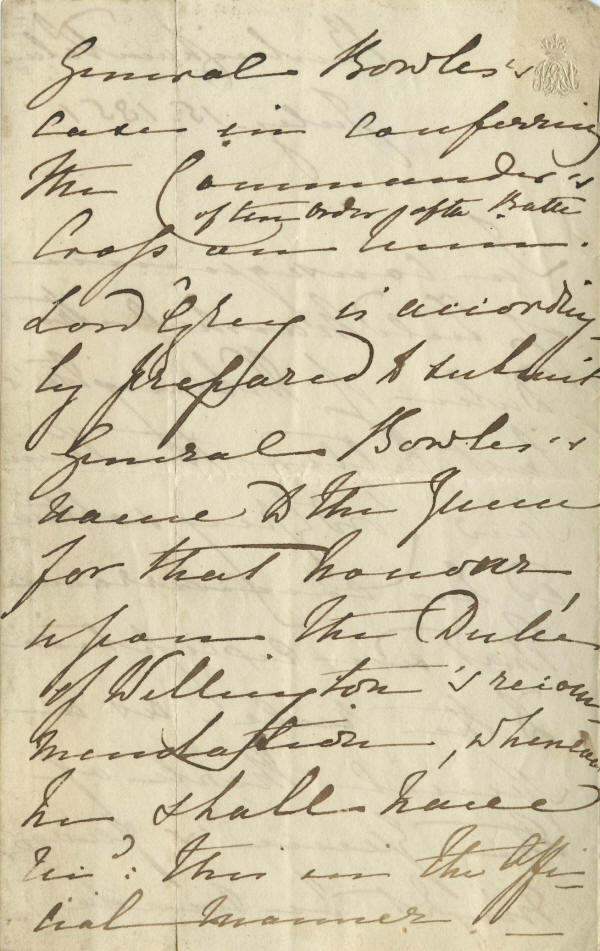 General Bowles's
case in conferring
the Commander's
of the Order of the Bath
Cross on him.
Lord Grey is according-
ly prepared to submit
General Bowles's
name to the Queen
for that honour
upon the Duke
of Wellington's recom-
mendation, whenever
he shall have
this in the offi-
cial manner.